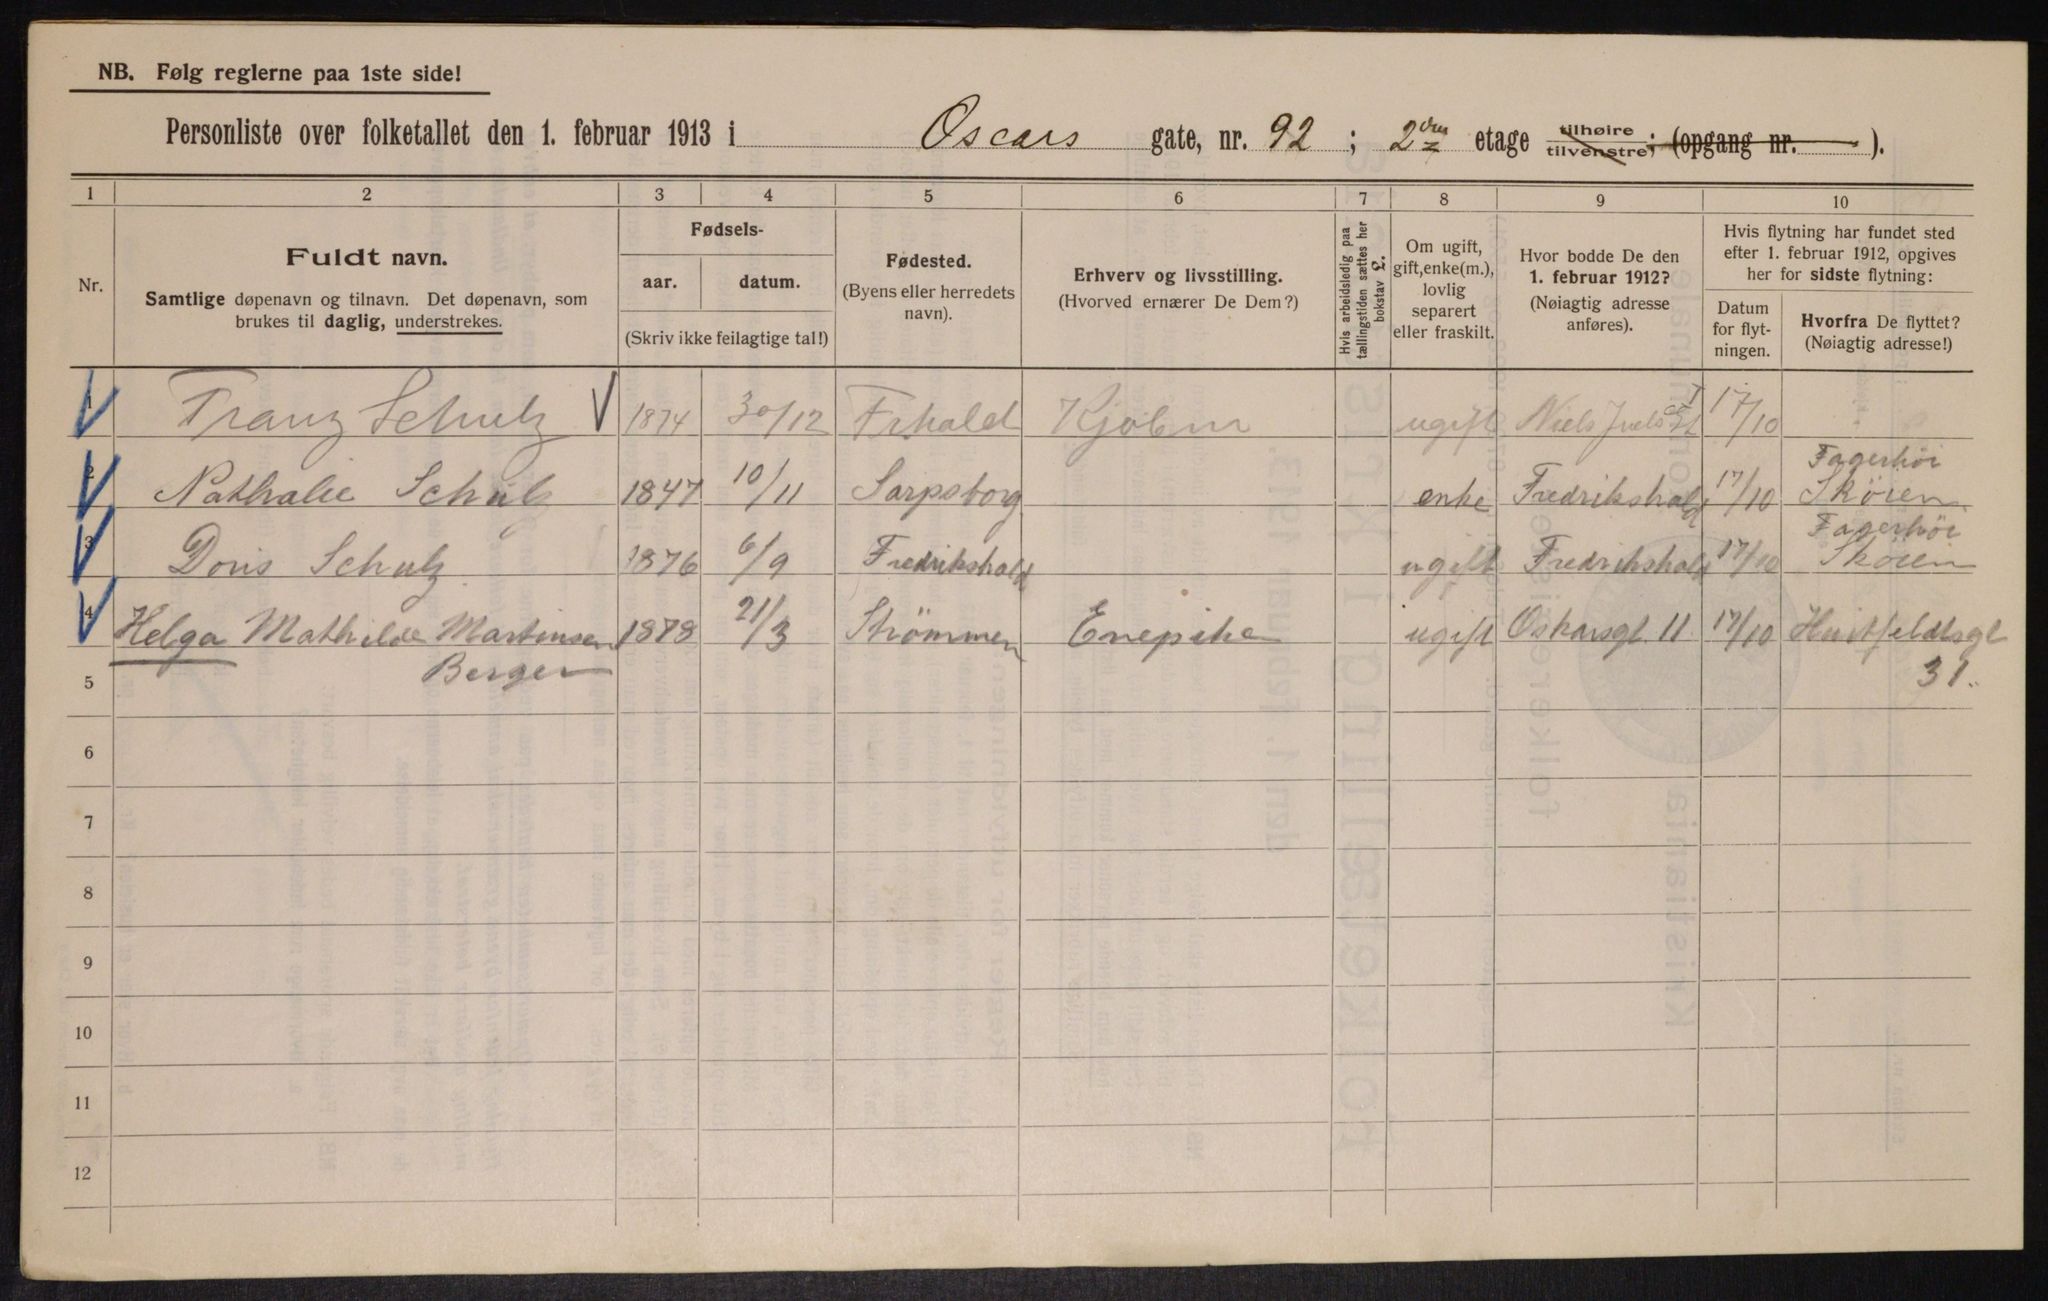 NB. Følg reglerne paa 1ste side!
Personliste over folketallet den 1. februar 1913 i Oscars gate, nr. 92 ; 2den etage tilhøire tilvenstre; (opgang nr. ).
1 2 3 4 5 6 7 8 9 10
Nr.
Fuldt navn.
Samtlige døpenavn og tilnavn. Det døpenavn, som
brukes til daglig, understrekes.
Fødsels-
aar. datum.
(Skriv ikke feilagtige tal!)
Fødested.
(Byens eller herredets
navn).
Erhverv og livsstilling.
(Hvorved ernærer De Dem?)
Hvis arbeidsledig paa
tællingstiden sættes her
bokstav L.
Om ugift,
gift, enke(m.),
lovlig
separert
eller fraskilt.
Hvor bodde De den
1. februar 1912?
(Nøiagtig adresse
anføres).
Hvis flytning har fundet sted
efter 1. februar 1912, opgives
her for sidste flytning:
Datum
for flyt-
ningen.
Hvorfra De flyttet?
(Nøiagtig adresse!)
1 Franz Schulz 1874 30/12 Frhald Kjøbm ugift Niels Juels Gt 17/10
2 Nathalie Schulz 1847 10/11 Sarpsborg enke Fredrikshald 17/10 Fagerhöi Skören
3 Doris Schulz 1876 6/9 Fredrikshald ugift Fredrikshald 17/10 Fagerhöi Skören
4 Helga Mathilde Martinsen 1878 21/3 Strömmen Enepike ugift Oskarsgt 11 17/10 Huitfeldtsgt
5 Berger 31.
6
7
8
9
10
11
12